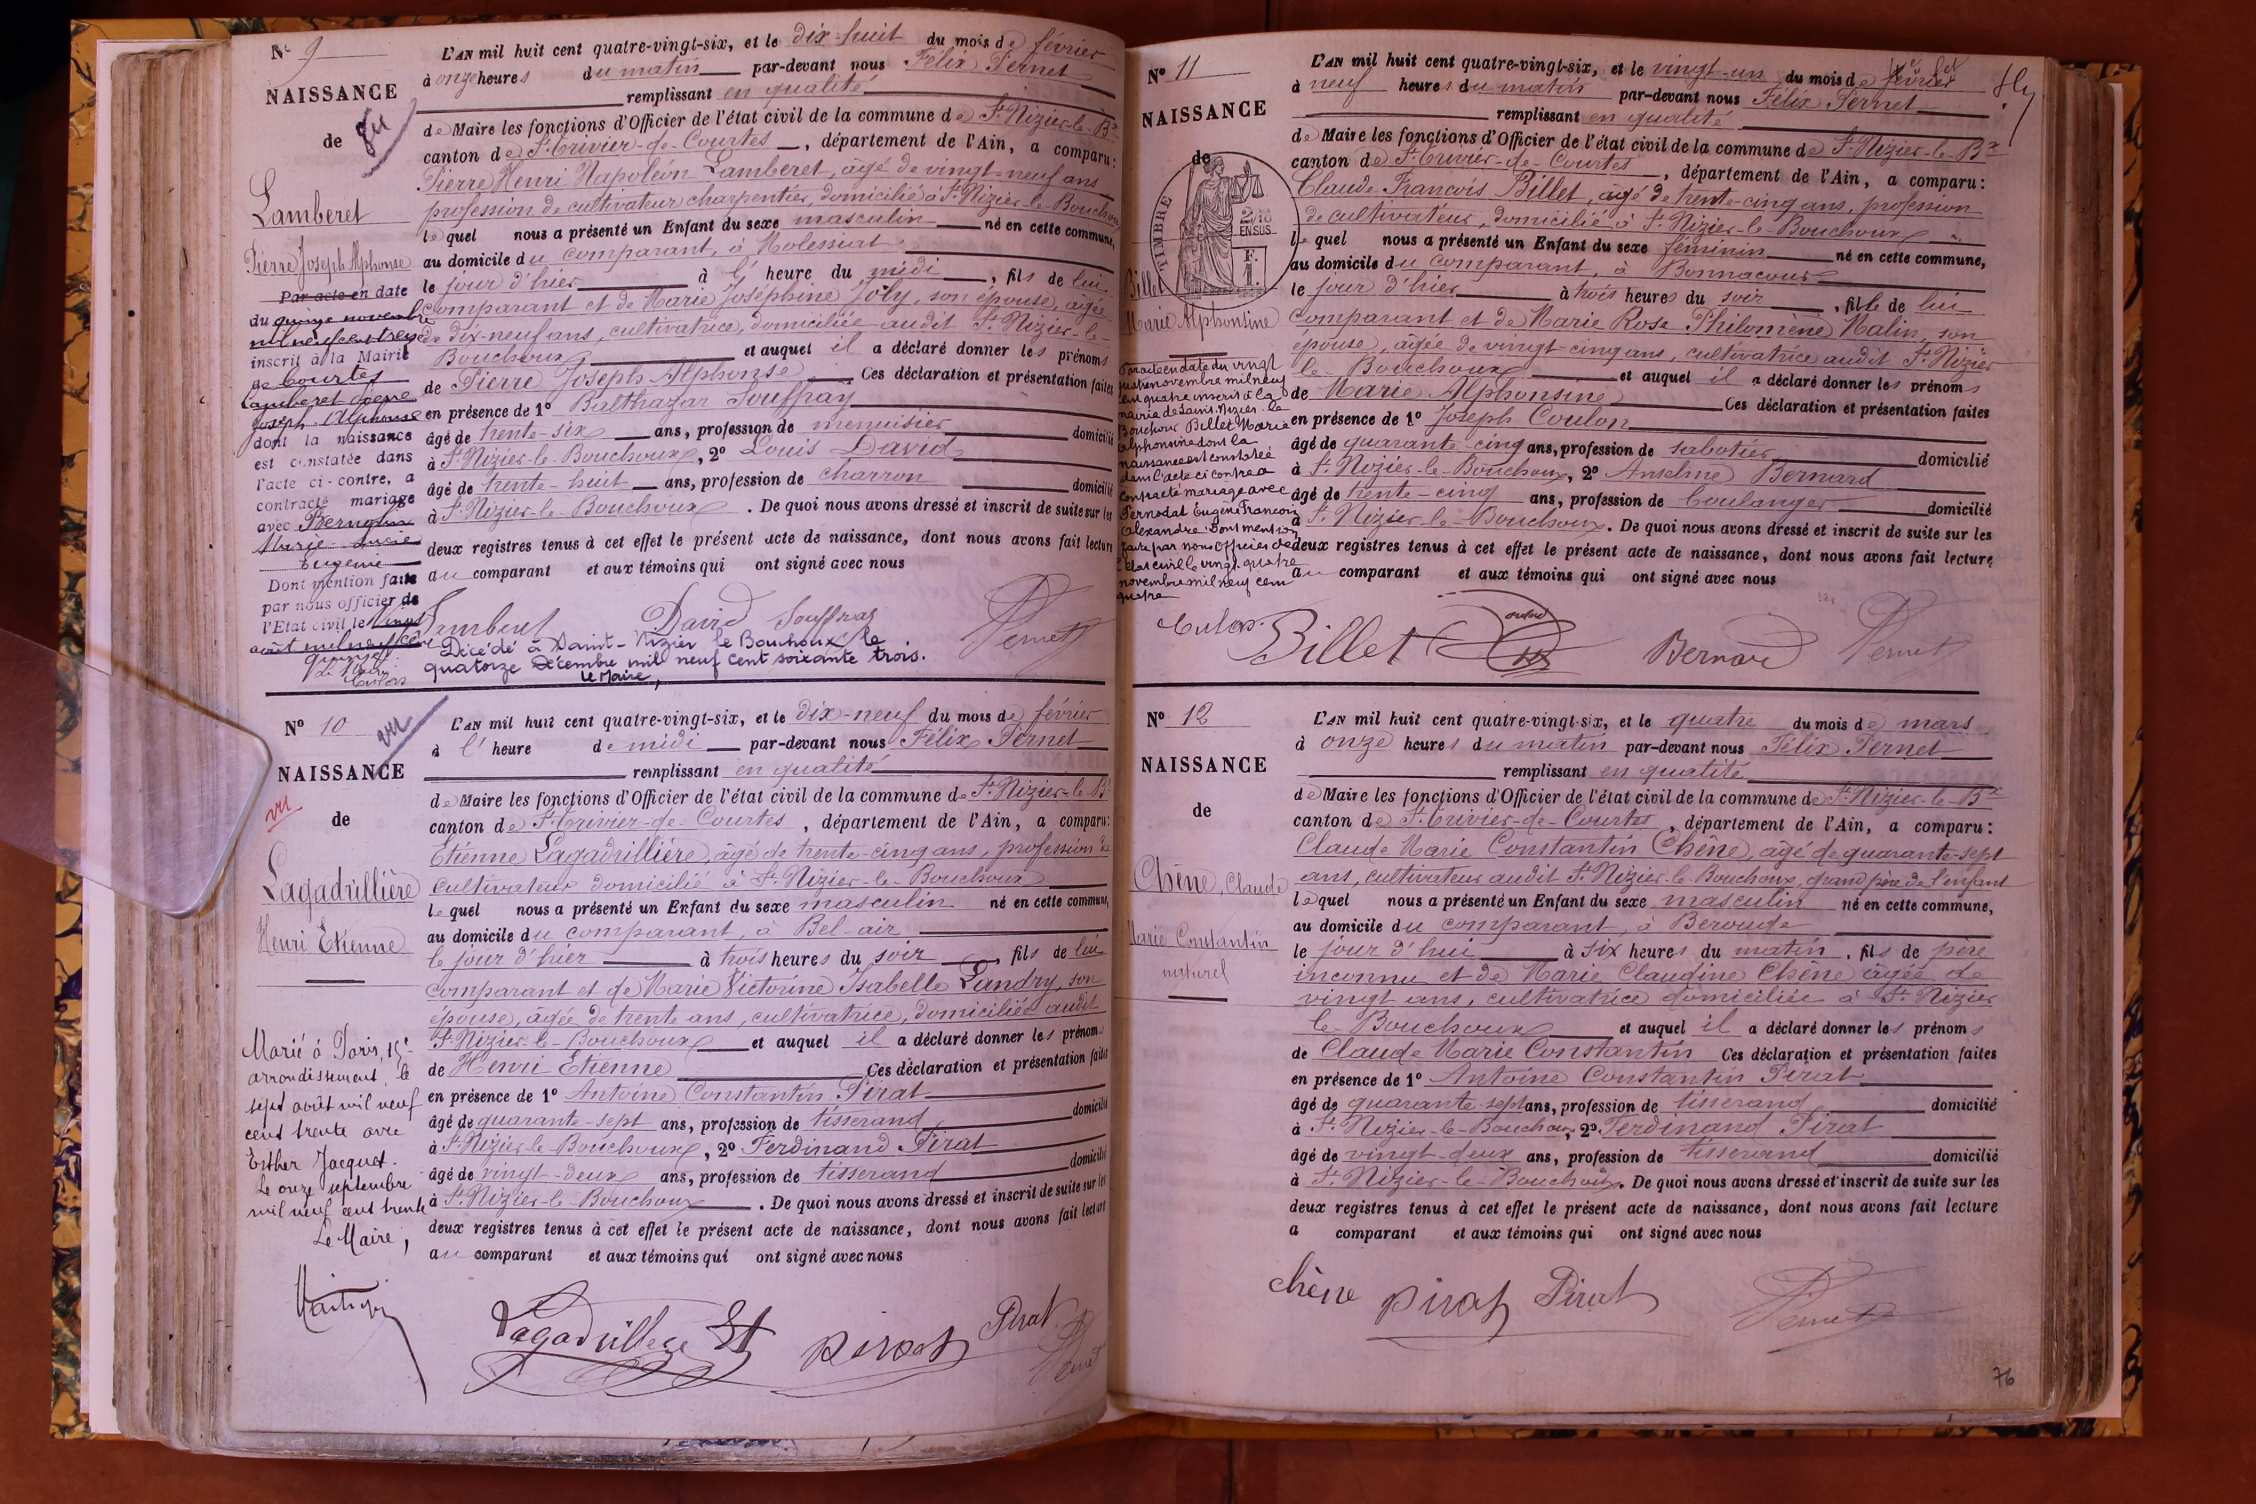 N° 9
NAISSANCE
de
vu
Lamberet
Pierre Joseph Alphonse
Par acte en date
du quinze novembre
mil neuf cent treize
inscrit à la Mairie
de Courtes
Lamberet Pierre
Joseph Alphonse
dont la naissance
est constatée dans
l'acte ci-contre, a
contracté mariage
avec Bernolin
Marie Lucie
Eugénie
Dont mention faite
par nous officier de
l'Etat civil le vingt
août mil neuf cent
quinze
Le Maire
L'AN mil huit cent quatre-vingt-six, et le dix-huit du mois de février
à onze heures du matin par-devant nous Félix Pernet
remplissant en qualité
de Maire les fonctions d'Officier de l'état civil de la commune de St Nizier-le-Bx
canton de St Trivier-de-Courtes, département de l'Ain, a comparu:
Pierre Henri Napoléon Lamberet, âgé de vingt-neuf ans
profession de cultivateur charpentier, domicilié à St Nizier-le-Bouchoux
lequel nous a présenté un Enfant du sexe masculin né en cette commune,
au domicile du comparant, à Molessiat
le jour d'hier à l'heure du midi, fils de lui
comparant et de Marie Joséphine Joly, son épouse, âgée
de dix-neuf ans, cultivatrice, domiciliée audit St Nizier-le-
Bouchoux et auquel il a déclaré donner les prénoms
de Pierre Joseph Alphonse Ces déclaration et présentation faites
en présence de 1° Balthazar Jouffray
âgé de trente-six ans, profession de menuisier domicilié
à St Nizier-le-Bouchoux, 2° Louis David
âgé de trente-huit ans, profession de charron domicilié
à St Nizier-le-Bouchoux. De quoi nous avons dressé et inscrit de suite sur les
deux registres tenus à cet effet le présent acte de naissance, dont nous avons fait lecture
au comparant et aux témoins qui ont signé avec nous
Lamberet David Jouffray Pernet
Décédé à Saint-Nizier le Bouchoux le
quatorze décembre mil neuf cent soixante trois.
Le Maire,
N° 10
vu
NAISSANCE
vu
de
Lagadrillière
Henri Etienne
Marié à Paris, 15e
arrondissement, le
sept août mil neuf
cent trente avec
Esther Jacquet.
Le onze septembre
mil neuf cent trente
Le Maire,
L'AN mil huit cent quatre-vingt-six, et le dix-neuf du mois de février
à l'heure de midi par-devant nous Félix Pernet
remplissant en qualité
de Maire les fonctions d'Officier de l'état civil de la commune de St Nizier-le-Bx
canton de St Trivier-de-Courtes, département de l'Ain, a comparu:
Etienne Lagadrillière, âgé de trente-cinq ans, profession de
cultivateur domicilié à St Nizier-le-Bouchoux
lequel nous a présenté un Enfant du sexe masculin né en cette commune,
au domicile du comparant, à Bel-air
le jour d'hier à trois heures du soir, fils de lui
comparant et de Marie Victorine Isabelle Landry, son
épouse, âgée de trente ans, cultivatrice, domiciliée audit
St Nizier-le-Bouchoux et auquel il a déclaré donner les prénoms
de Henri Etienne Ces déclaration et présentation faites
en présence de 1° Antoine Constantin Pirat
âgé de quarante-sept ans, profession de tisserand domicilié
à St Nizier-le-Bouchoux, 2° Ferdinand Pirat
âgé de vingt-deux ans, profession de tisserand domicilié
à St Nizier-le-Bouchoux. De quoi nous avons dressé et inscrit de suite sur les
deux registres tenus à cet effet le présent acte de naissance, dont nous avons fait lecture
au comparant et aux témoins qui ont signé avec nous
Lagadrillière Et Pirat Pirat Pernet
N° 11
NAISSANCE
de
TIMBRE
2/10 EN SUS
F. 1
Billet
Marie Alphonsine
Par acte en date du vingt
quatre novembre mil neuf
cent quatre inscrit à la
mairie de Saint Nizier le
Bouchoux Billet Marie
Alphonsine dont la
naissance est constatée
dans l'acte ci contre a
contracté mariage avec
Pernodat Eugène François
Alexandre. Dont mention
faite par nous Officier de
l'état civil le vingt quatre
novembre mil neuf cent
quatre
L'AN mil huit cent quatre-vingt-six, et le vingt-un du mois de février
à neuf heures du matin par-devant nous Félix Pernet
remplissant en qualité
de Maire les fonctions d'Officier de l'état civil de la commune de St Nizier-le-Bx
canton de St Trivier-de-Courtes, département de l'Ain, a comparu:
Claude François Billet, âgé de trente-cinq ans, profession
de cultivateur, domicilié à St Nizier-le-Bouchoux
lequel nous a présenté un Enfant du sexe féminin né en cette commune,
au domicile du comparant, à Bonnacour
le jour d'hier à trois heures du soir, fille de lui
comparant et de Marie Rose Philomène Malin, son
épouse, âgée de vingt-cinq ans, cultivatrice audit St Nizier
le-Bouchoux et auquel il a déclaré donner les prénoms
de Marie Alphonsine Ces déclaration et présentation faites
en présence de 1° Joseph Coulon
âgé de quarante-cinq ans, profession de sabotier domicilié
à St Nizier-le-Bouchoux, 2° Anselme Bernard
âgé de trente-cinq ans, profession de boulanger domicilié
à St Nizier-le-Bouchoux. De quoi nous avons dressé et inscrit de suite sur les
deux registres tenus à cet effet le présent acte de naissance, dont nous avons fait lecture
au comparant et aux témoins qui ont signé avec nous
Billet Bernard Pernet
N° 12
NAISSANCE
de
Chêne, Claude
Marie Constantin
naturel
L'AN mil huit cent quatre-vingt-six, et le quatre du mois de mars
à onze heures du matin par-devant nous Félix Pernet
remplissant en qualité
de Maire les fonctions d'Officier de l'état civil de la commune de St Nizier-le-Bx
canton de St Trivier-de-Courtes, département de l'Ain, a comparu:
Claude Marie Constantin Chêne, âgé de quarante-sept
ans, cultivateur audit St Nizier-le-Bouchoux, grand père de l'enfant
lequel nous a présenté un Enfant du sexe masculin né en cette commune,
au domicile du comparant, à Beroude
le jour d'hui à six heures du matin, fils de père
inconnu et de Marie Claudine Chêne âgée de
vingt ans, cultivatrice domiciliée à St Nizier
le-Bouchoux et auquel il a déclaré donner les prénoms
de Claude Marie Constantin Ces déclaration et présentation faites
en présence de 1° Antoine Constantin Pirat
âgé de quarante-sept ans, profession de tisserand domicilié
à St Nizier-le-Bouchoux, 2° Ferdinand Pirat
âgé de vingt-deux ans, profession de tisserand domicilié
à St Nizier-le-Bouchoux. De quoi nous avons dressé et inscrit de suite sur les
deux registres tenus à cet effet le présent acte de naissance, dont nous avons fait lecture
a comparant et aux témoins qui ont signé avec nous
Chêne Pirat Pirat Pernet
76